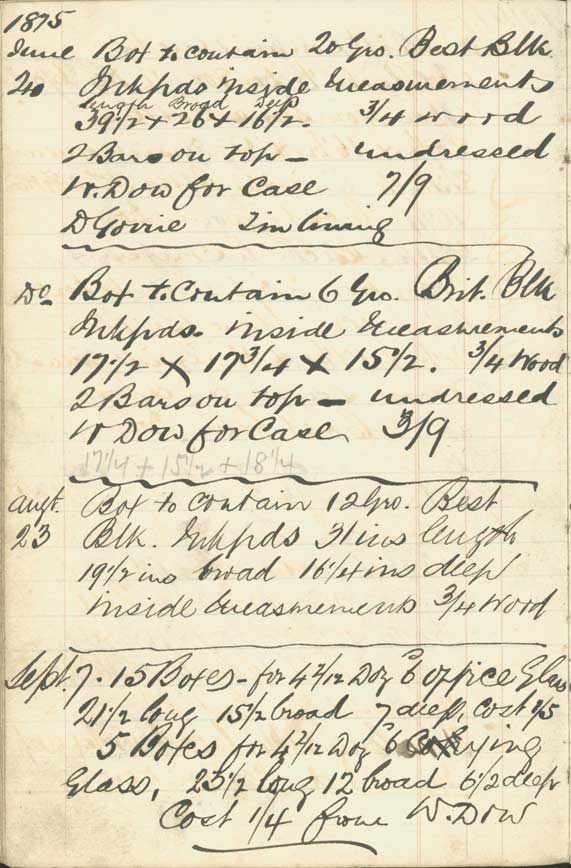 1875
June Box to contain 20 Gro. Best Blk.
20 Inkpds inside measurements
length Broad Deep
39 1/2 + 26 + 16 1/2. 3/4 wood
2 Bars on top — undressed
W. Dow for Case 7/9
D Govrie Tin lining
Do Box to contain 6 Gro. Brit. Blk
Inkpds. inside measurements
17 1/2 X 17 3/4 X 15 1/2. 3/4 Wood
2 Bars on top — undressed
W Dow for Case 3/9
17 1/4 + 15 1/2 + 18 1/4
Augt. Box to contain 12 Gro. Best
23 Blk. Inkpds 31 ins length
19 1/2 ins broad 16 1/4 ins deep
inside measurements 3/4 Wood
Sept. 7. 15 Boxes - for 4 2/12 Doz 6 office Glass
21 1/2 long 15 1/2 broad 7 deep, cost 1/5
5 Boxes for 4 2/12 Doz 6
Glass, 25 1/2 long 12 broad 6 1/2 deep
Cost 1/4 from W. Dow